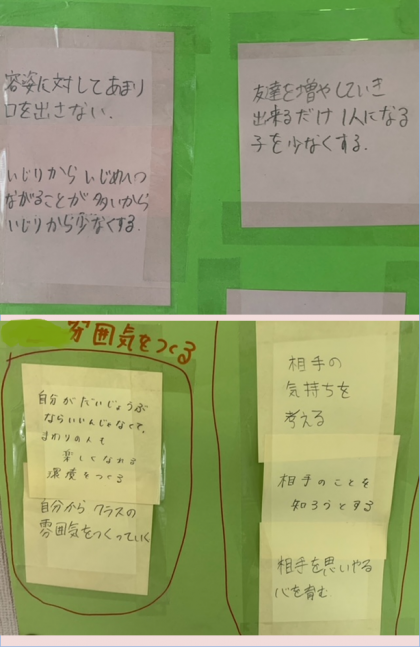 容姿に対してあまり
口を出さない.
いじりからいじめにつ
ながることが多いから
いじりから少なくする.
友達を増やしていき
出来るだけ1人になる
子を少なくする.
雰囲気をつくる
自分がだいじょうぶ
ならいいんじゃなくて、
まわりの人も
楽しくなれる
環境をつくる
自分からクラスの
雰囲気をつくっていく
相手の
気持ちを
考える
相手のことを
知ろうとする
相手を思いやる
心を育む